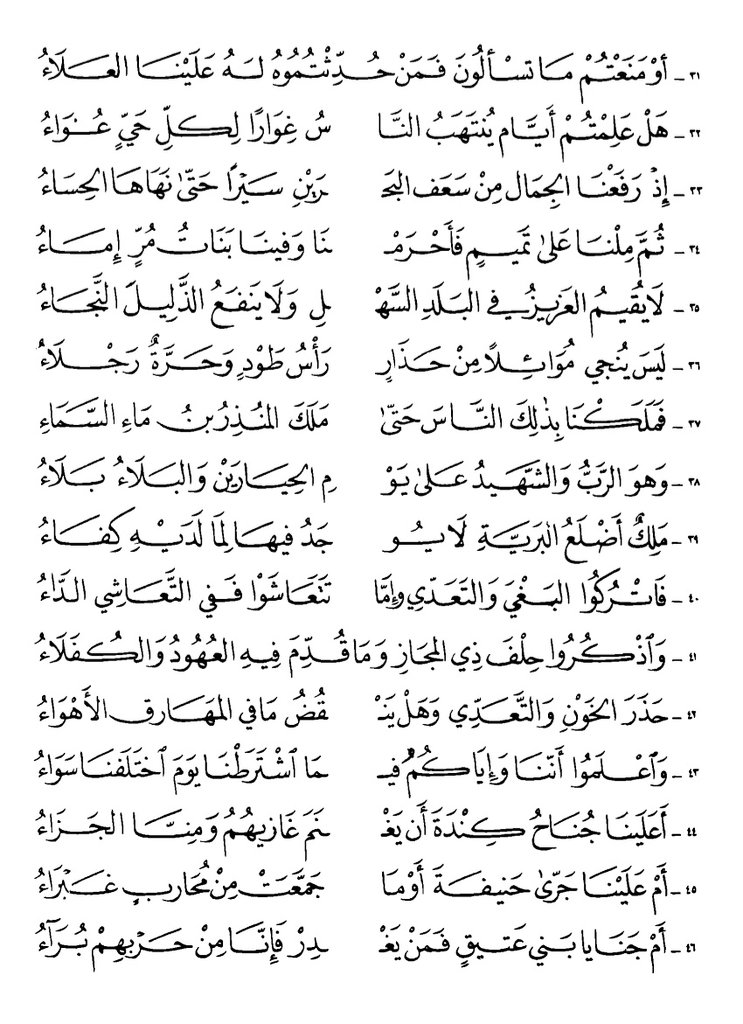 ٣١ - أَوْ مَنَعْتُمْ مَا تَسْأَلُونَ فَمَنْ حُدِّثْتُمُوهُ لَهُ عَلَيْنَا العَلَاءُ
٣٢ - هَلْ عَلِمْتُمْ أَيَّامَ يُنْتَهَبُ النَّا سُ غِوَارًا لِكلِّ حَيٍّ عُوَاءُ
٣٣ - إِذْ رَفَعْنَا الجِمَالَ مِنْ سَعَفِ البَحْـ ـرَيْنِ سَيْرًا حَتَّىٰ نَهَاهَا الحِسَاءُ
٣٤ - ثُمَّ مِلْنَا عَلَىٰ تَمِيمٍ فَأَحْرَمْـ ـنَا وَفِينَا بَنَاتُ مُرٍّ إِمَاءُ
٣٥ - لَا يُقِيمُ العَزِيزُ في البَلَدِ السَّهْـ ـلِ وَلَا يَنفَعُ الذَّلِيلَ النَّجَاءُ
٣٦ - لَيَسَ يُنْجِي مُوَائِلًا مِنْ حَذَارِ رَأْسُ طَوْدٍ وَحَرَّةٌ رَجْلَاءُ
٣٧ - فَمَلَكْنَا بِذٰلِكَ النَّاسَ حَتَّىٰ مَلَكَ المُنْذِرُ بنُ مَاءِ السَّمَاءِ
٣٨ - وَهوَ الرَّبُّ وَالشَّهِيدُ عَلىٰ يَوْ مِ الحِيَارَيْنِ وَالبَلَاءُ بَلَاءُ
٣٩ - مَلِكٌ أَضْلَعُ البَرِيَّةِ لَا يُو جَدُ فِيهَا لِمَا لَدَيْهِ كِفَاءُ
٤٠ - فَاتْرُكُوا البَغْيَ وَالتَّعَدِّي وإِمَّا تَتَعَاشَوْا فَفِي التَّعَاشِي الدَّاءُ
٤١ - وَٱذْكُرُوا حِلْفَ ذِي المجَازِ وَمَا قُدِّمَ فِيهِ العُهُودُ وَالكُفَلَاءُ
٤٢ - حَذَرَ الخَوْنِ وَالتَّعَدِّي وَهَلْ يَنْـ ـقُضُ مَا فِي المَهَارِقِ الأَهْوَاءُ
٤٣ - وَٱعْلَمُوا أَنَّنَا وَإِيَّاكُمْ فِيـ ـمَا ٱشْتَرَطْنَا يَوْمَ ٱخْتَلَفنَا سَوَاءُ
٤٤ - أَعَلَينَا جُنَاحُ كِنْدَةَ أَن يَغْـ ـنَمَ غَازِيهُمُ وَمِنَّا الجَزَاءُ
٤٥ - أَمْ عَلَيْنَا جَرَّىٰ حَنِيفَةَ أَوْ مَا جَمَّعَتْ مِنْ مُحَارِبٍ غَبْرَاءُ
٤٦ - أَمْ جَنَايَا بَنِي عَتِيقٍ فَمَنْ يَغْـ ـدِرْ فَإِنَّا مِنْ حَرْبِهِمْ بُرَآءُ